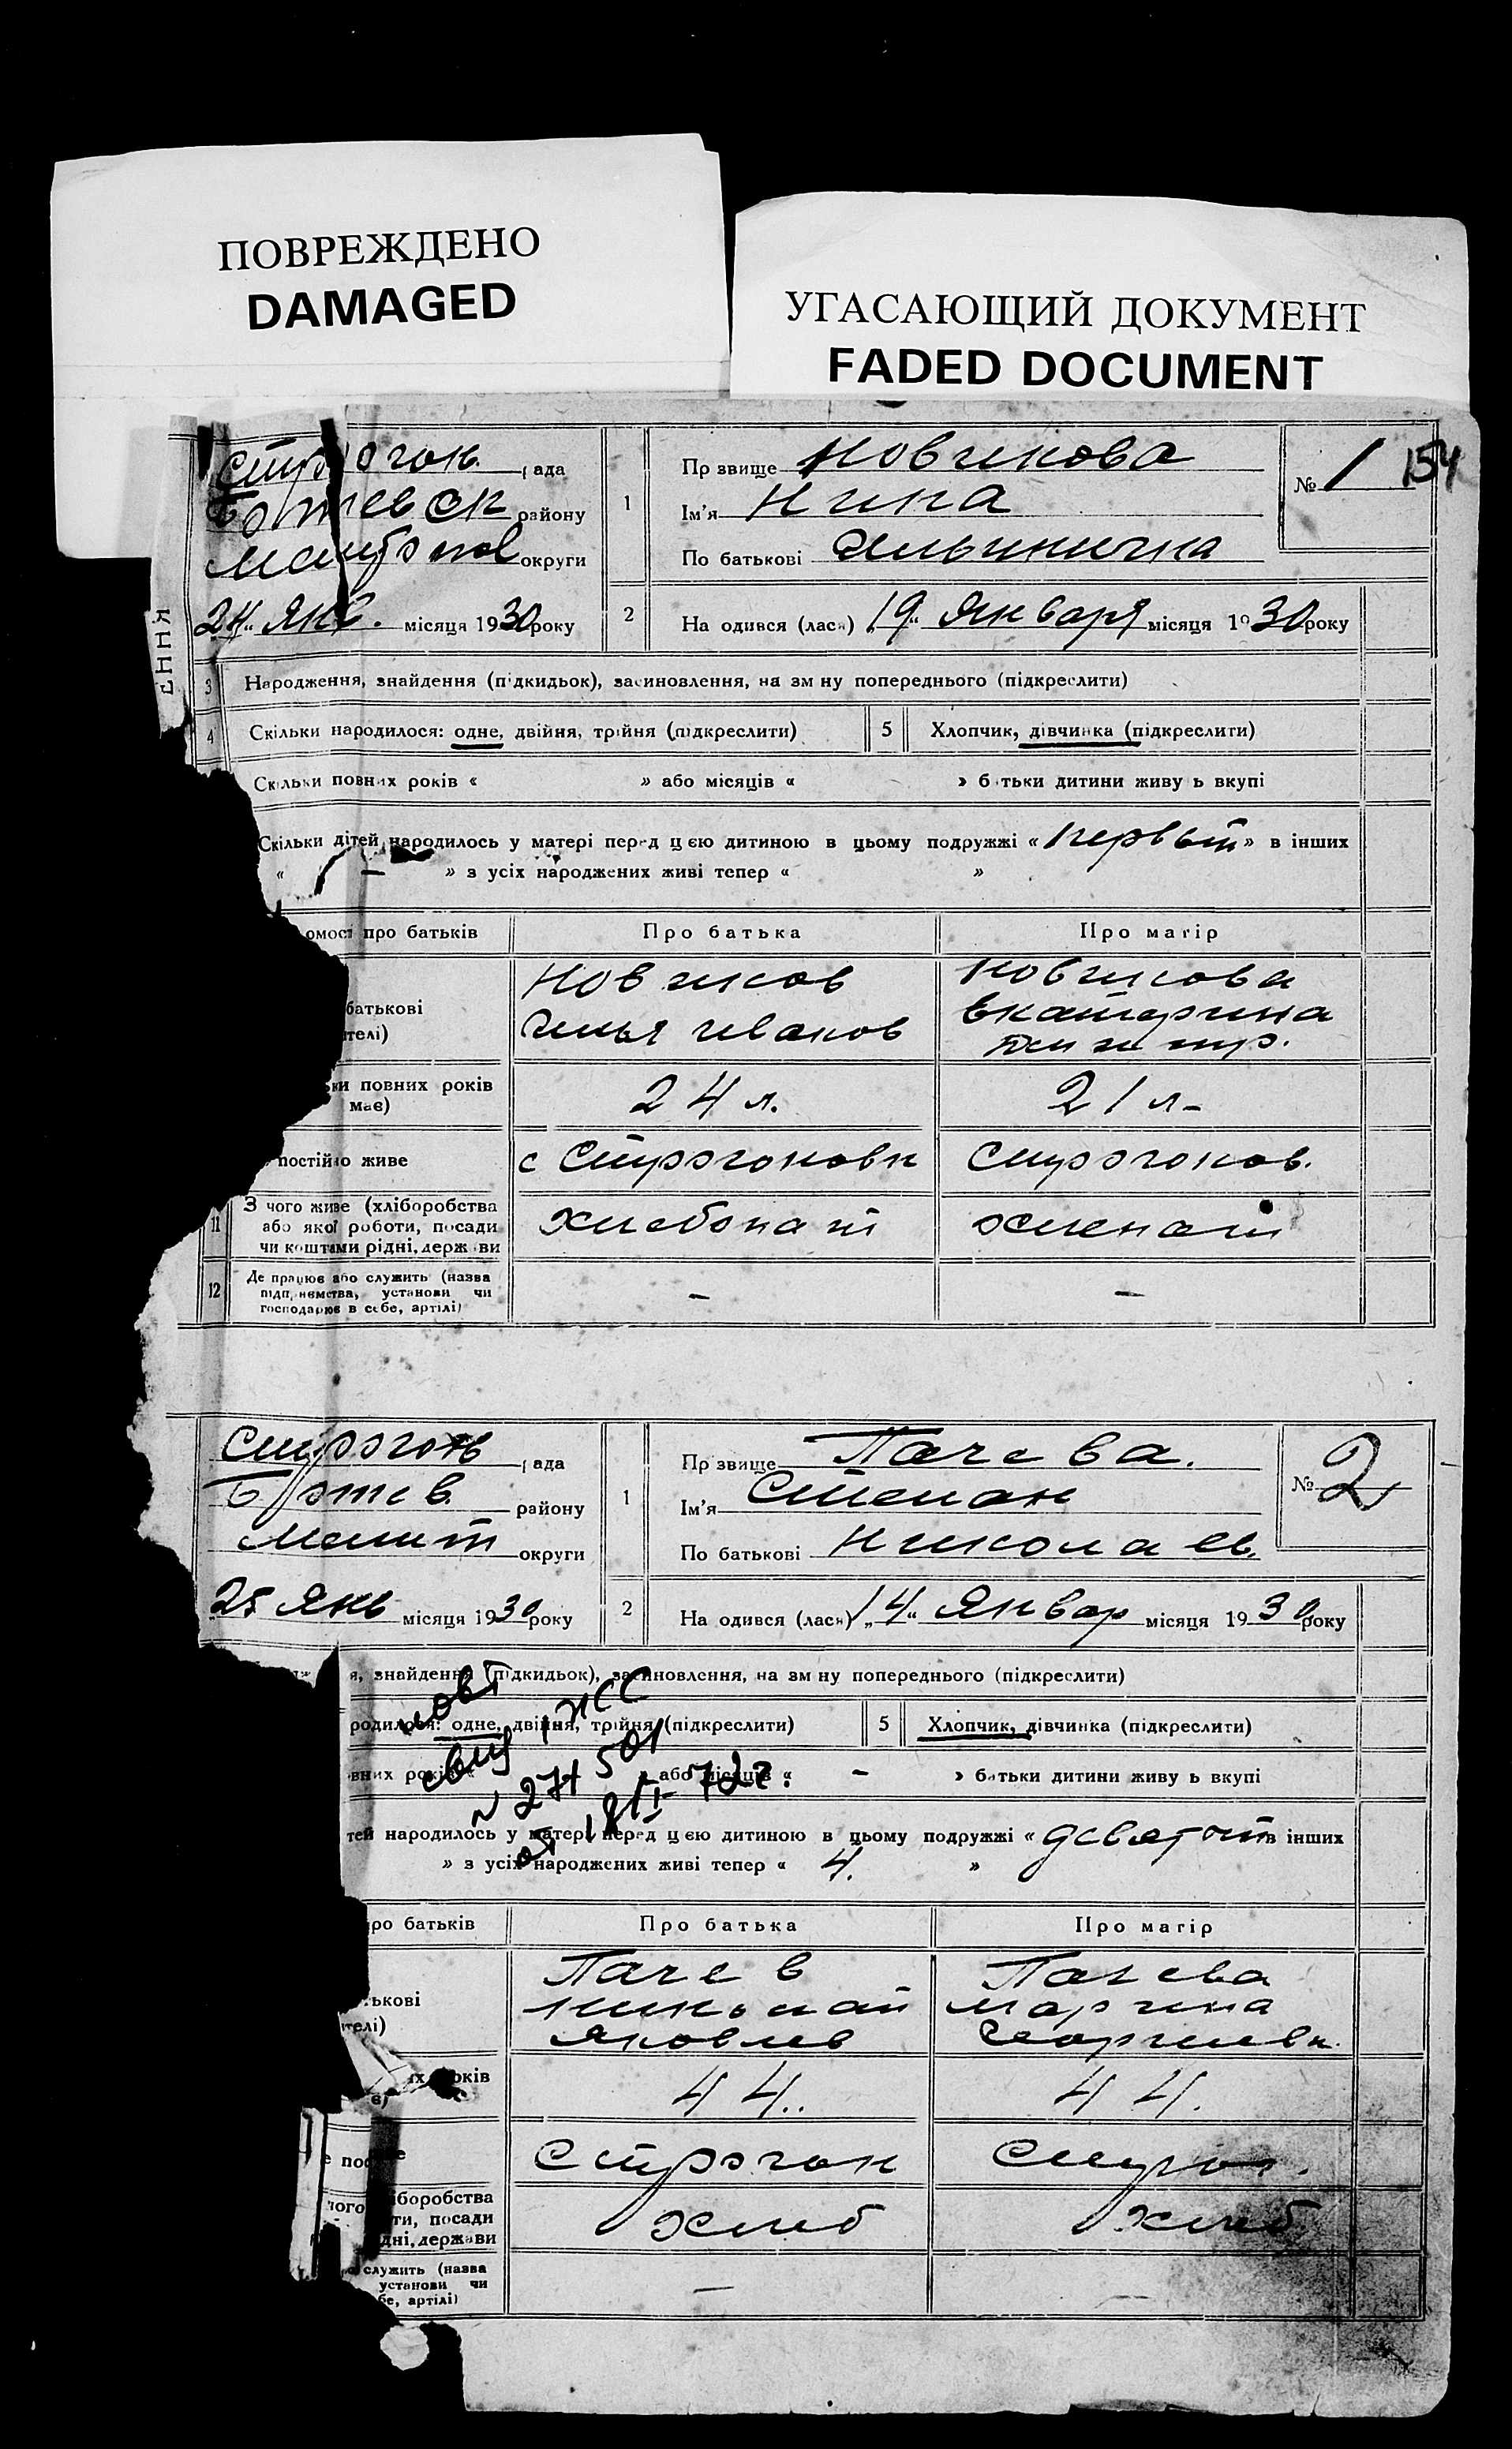 ПОВРЕЖДЕНО
DAMAGED
УГАСАЮЩИЙ ДОКУМЕНТ
FADED DOCUMENT
ення
Строгон. рада
Ботневск района
24 " янв. місяця 1930 року
округи
1
Прзвище Новикова
Ім'я Нина
По батькові Ильинична
№ 1
154
2
На одився (лася) „19" Января місяця 1930 року
3 Народження, знайдення (підкидьок), засиновлення, на зм ну попереднього (підкреслити)
4 Скільки народилося: одне, двійня, трійня (підкреслити)
5 Хлопчик, дівчинка (підкреслити)
Скільки повних років « » або місяців « » батьки дитини живу ь вкупі
Скільки дітей народилось у матері перед цією дитиною в цьому подружжі « первый » в інших
« – » з усіх народжених живі тепер « »
омості про батьків
Про батька
Про матір
батькові
ителі)
Новиков
Илья Иванов
Новикова
Екатерина
ьки повних років
має)
24 л.
21 л.
постійно живе
с Строгоновк
Строгонов.
11 З чого живе (хліборобства
або якої роботи, посади
чи коштами рідні, держави
Хлебопаш
12 Де працює або служить (назва
підприємства, установи чи
господарює в себе, артілі)
–
–
Строгон рада
Ботев. району
Мелит округи
25 Янв місяця 1930 року
1
Прзвище Пачева.
Ім'я Степан
По батькові Николаев.
№ 2
2
На одився (лася) „14" Январ місяця 1930 року
я, знайдення (підкидьок), засиновлення, на зм ну попереднього (підкреслити)
родилося: одне, двійня, трійня (підкреслити)
5 Хлопчик, дівчинка (підкреслити)
вних років « » або місяців « – » батьки дитини живу ь вкупі
тей народилось у матері перед цією дитиною в цьому подружжі « девятый в інших
» з усіх народжених живі тепер « 4. »
№ 274501
ро батьків
Про батька
Про матір
тькові
ителі)
Пачев
Николай
Яковлев
Пачева
Марина
Георгиевн.
их років
є)
44..
44.
е пос е
Строгон
Строг.
чого іборобства
ти, посади
дні, держави
Хлеб
Хлеб
служить (назва
установи чи
бе, артілі)
–